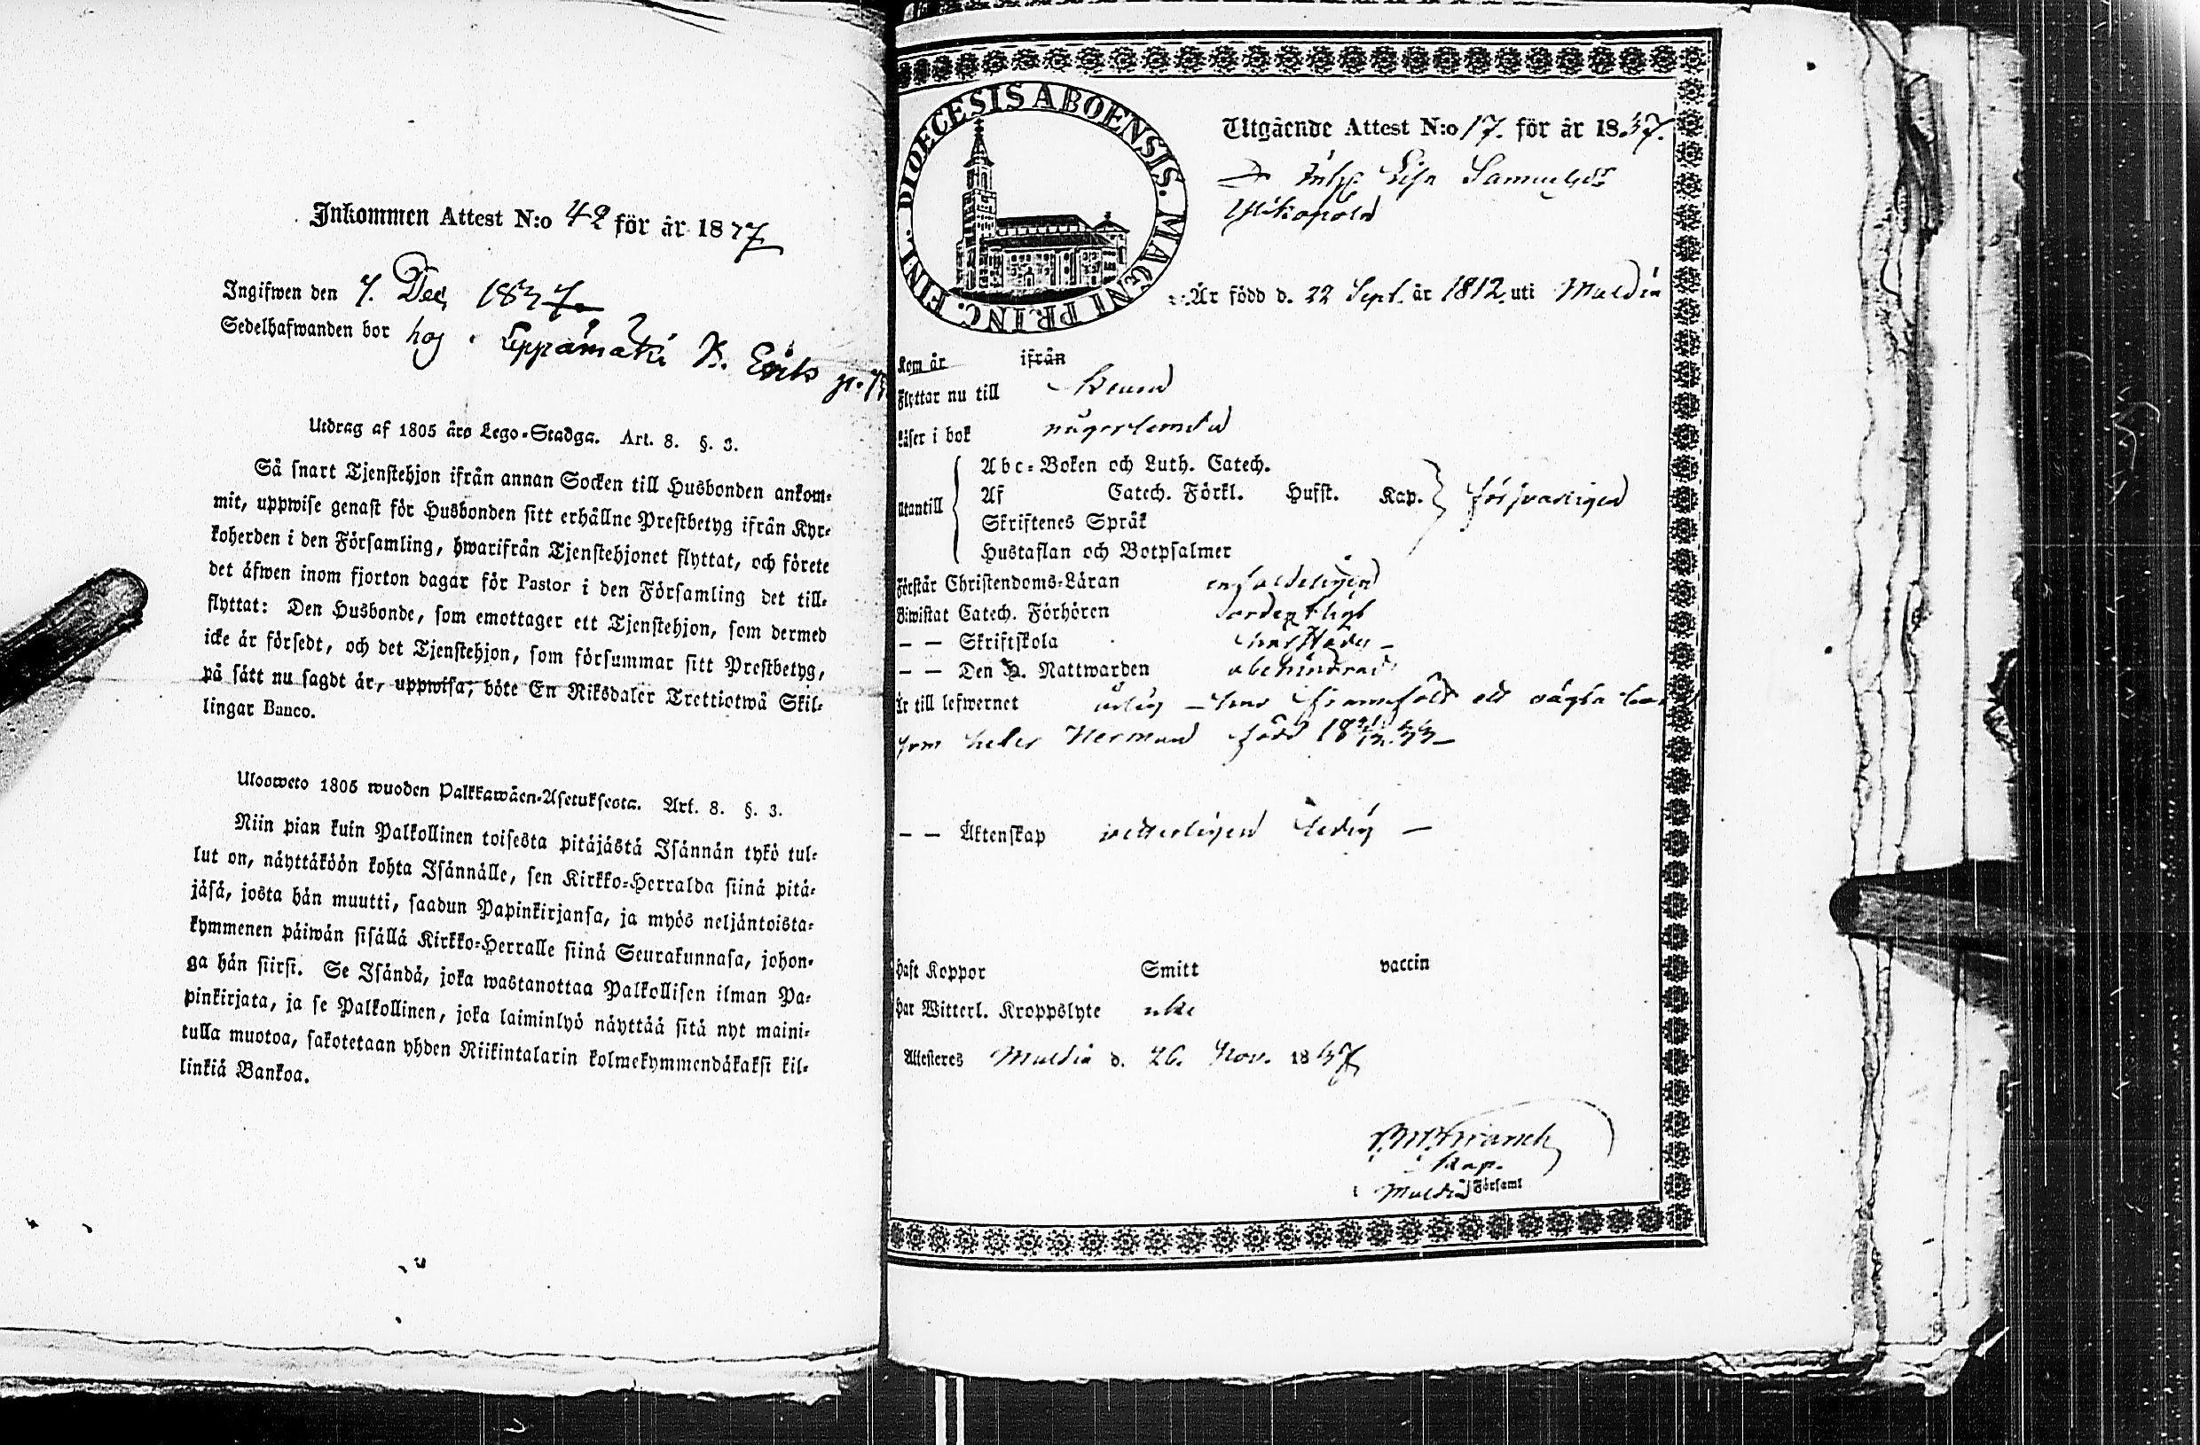 Inkommen Attest N:o 42 för år 1837
Ingifwen den 7. Dec 1837
Sedelhafwanden bor hos Leppämäki B. Eriks
Utdrag af 1805 års Lego-Stadga. Art. 8. §. 3.
Så snart Tjenstehjon ifrån annan Socken till Husbonden ankom-
mit, uppwise genast för Husbonden sitt erhållne Prestbetyg ifrån Kyr-
koherden i den Församling, hwarifrån Tjenstehjonet flyttat, och förete
det äfwen inom fjorton dagar för Pastor i den Församling det till-
flyttat: Den Husbonde, som emottager ett Tjenstehjon, som dermed
icke är försedt, och det Tjenstehjon, som försummar sitt Prestbetyg,
på sätt nu sagdt är, uppwisa, böte En Riksdaler Trettiotwå Skil-
lingar Banco.
Ulosweto 1805 wuoden Palkkawäen-Asetuksesta. Art. 8. §. 3.
Niin pian kuin Palkollinen toisesta pitäjästä Isännän tykö tul-
lut on, näyttäköön kohta Isännälle, sen Kirkko-Herralda siinä pitä-
jäsä, josta hän muutti, saadun Papinkirjansa, ja myös neljäntoista-
kymmenen päiwän sisällä Kirkko-Herralle siinä Seurakunnasa, johon-
ga hän siirsi. Se Isändä, joka wastanottaa Palkollisen ilman Pa-
pinkirjata, ja se Palkollinen, joka laiminlyö näyttää sitä nyt maini-
tulla muotoa, sakotetaan yhden Riikintalarin kolmekymmendäkaksi kil-
linkiä Bankoa.
DIOECESIS ABOENSIS. MAGNI PRINC. FINL.
Utgående Attest N:o 17. för år 1837.
Lisa Samuelsdr
Är född d. 22 Sept. år 1812. uti Muldia
Kom år ifrån
Flyttar nu till Keuru
Läser i bok någorlunda
Utantill
Abc-Boken och Luth. Catech.
Af Catech. Förkl. Hufst. Kap.
Skriftenes Språk
Hustaflan och Botpsalmer
försvarligen
Förstår Christendoms-Läran enfaldeligen
Biwistat Catech. Förhören ordentligt
— — Skriftskola
— — Den H. Nattwarden obehindrad
Är till lefwernet ärlig — har framfödt ett oägta barn
som heter Herman född 18 33 —
— — Äktenskap vetterligen ledig —
Haft Koppor Smitt vaccin
Har Witterl. Kroppslyte icke
Attesteres Muldia d. 26. Nov. 1837
Kap.
Muldia Församl